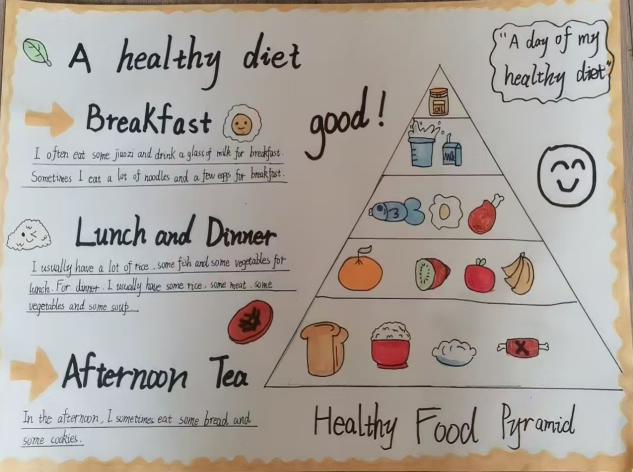 A healthy diet
"A day of my
healthy diet"
Breakfast
good!
I often eat some jiaozi and drink a glass of milk for breakfast.
Sometimes I eat a lot of noodles and a few eggs for breakfast.
Lunch and Dinner
I usually have a lot of rice, some fish and some vegetables for
lunch. For dinner, I usually have some rice, some meat, some
vegetables and some soup.
Afternoon Tea
In the afternoon, I sometimes eat some bread and
some cookies.
Healthy Food Pyramid